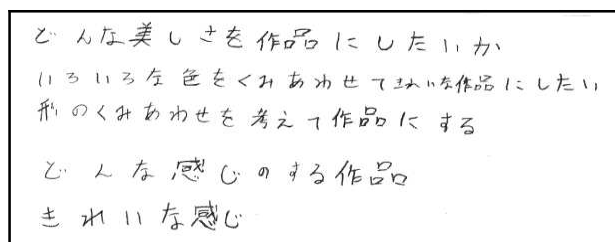 どんな美しさを作品にしたいか
いろいろな色をくみあわせてきれいな作品にしたい
形のくみあわせを考えて作品にする
どんな感じのする作品
きれいな感じ